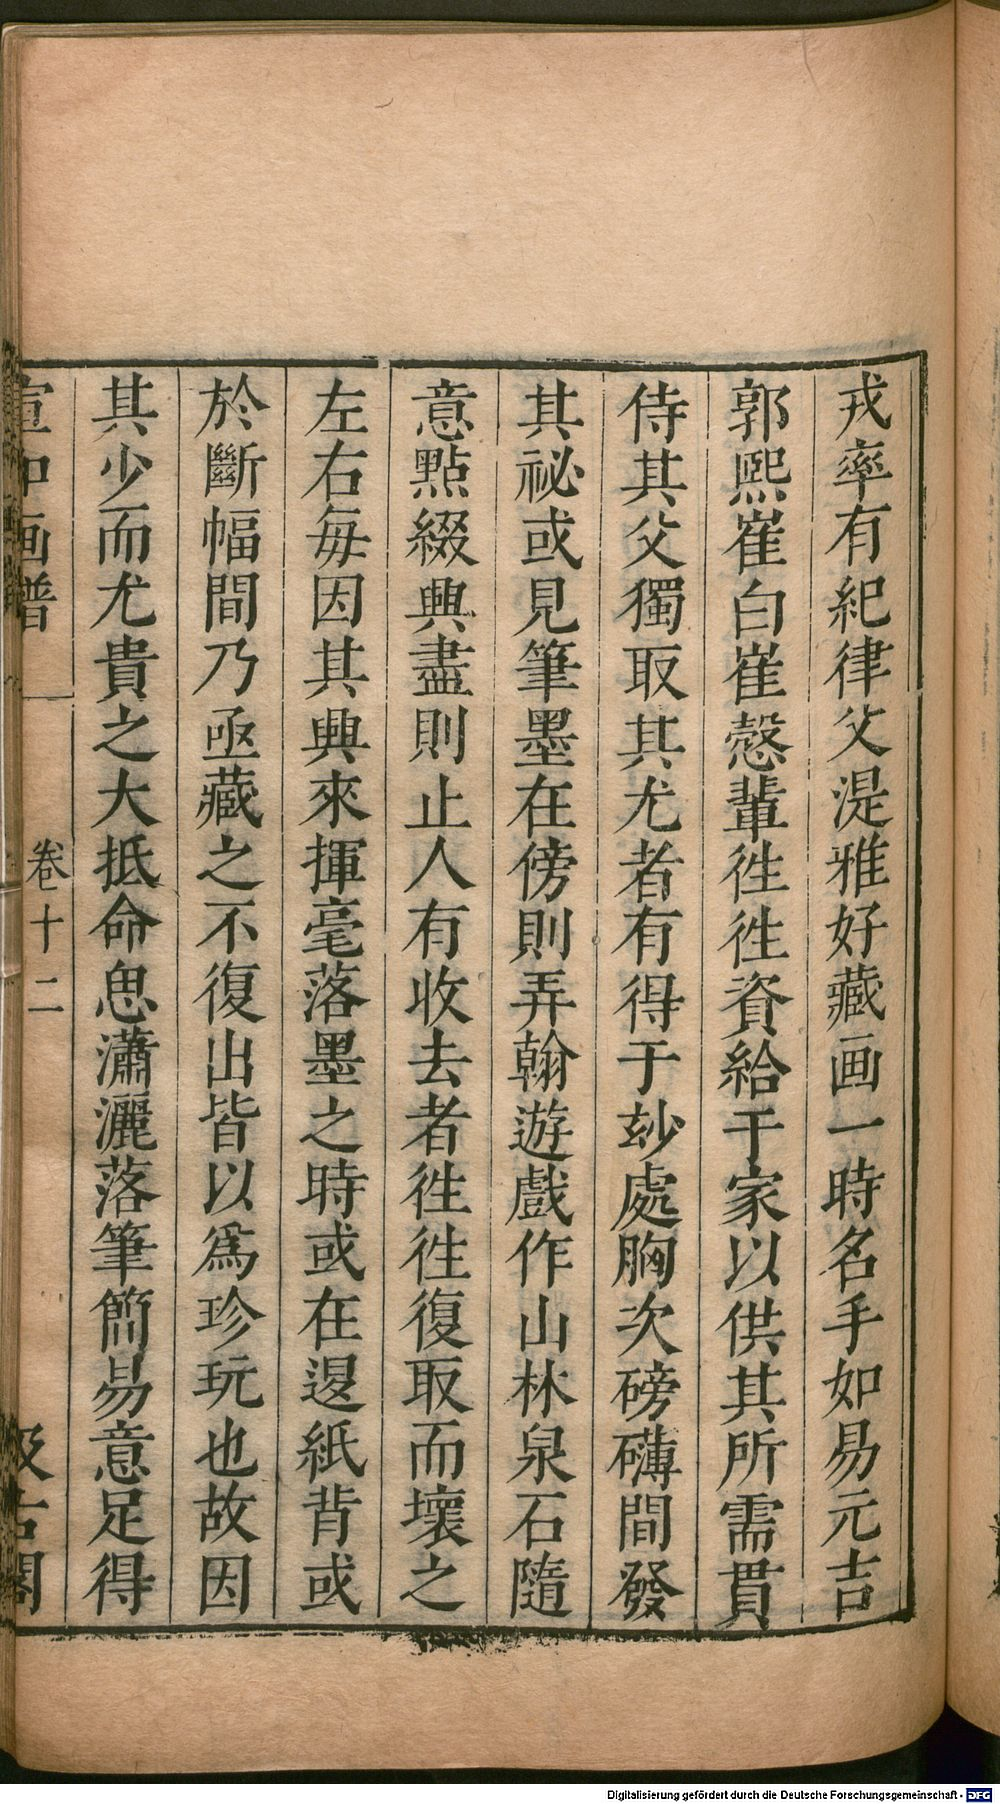 戎率有紀律父湜雅好藏画一時名手如易元吉
郭熙崔白崔慤輩徃徃資給于家以供其所需貫
侍其父獨取其尤者有得于玅處胸次磅礴間發
其祕或見筆墨在傍則弄翰遊戲作山林泉石隨
意點綴興盡則止人有收去者徃徃復取而壞之
左右每因其興來揮毫落墨之時或在退紙背或
於斷幅間乃亟藏之不復出皆以爲珍玩也故因
其少而尤貴之大抵命思瀟灑落筆簡易意足得
宣和画譜
卷十二
汲古閣
Digitalisierung gefördert durch die Deutsche Forschungsgemeinschaft - DFG